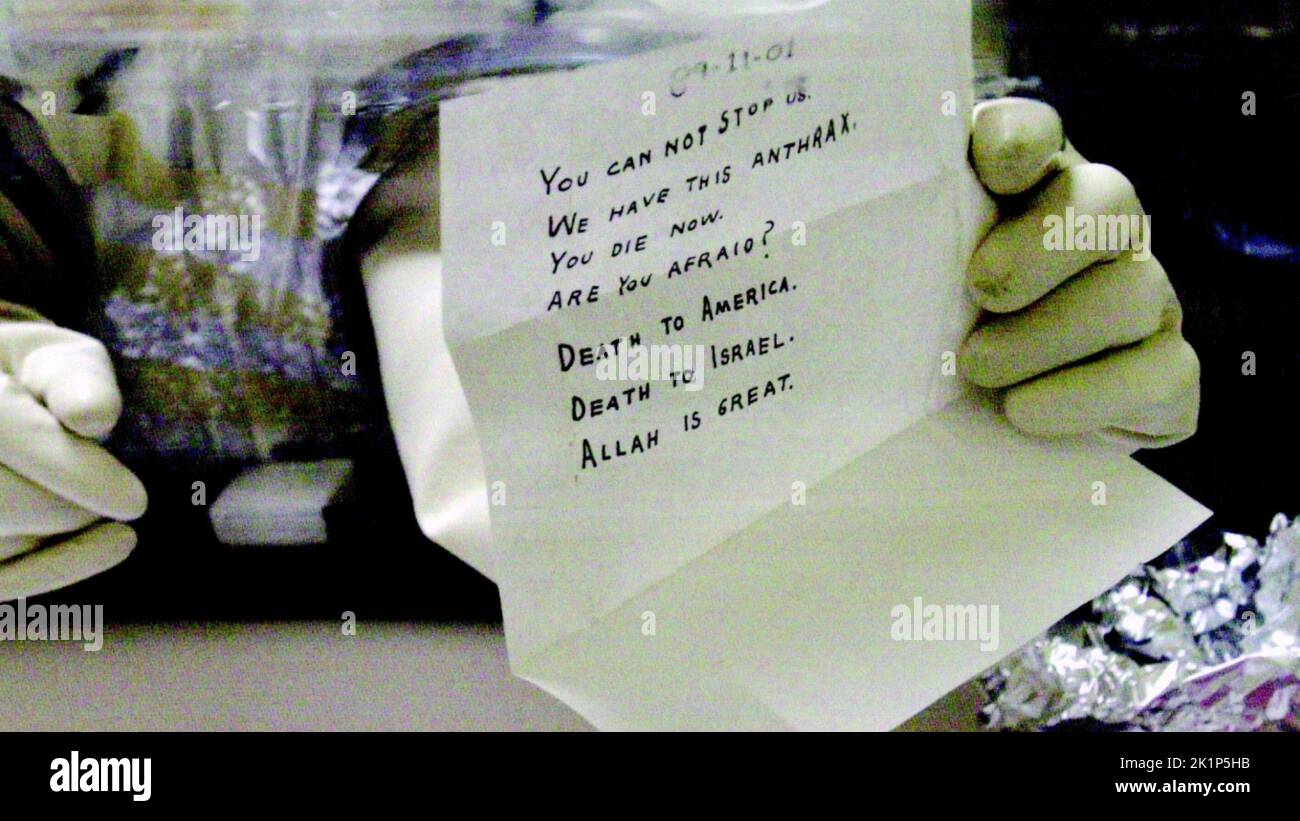 09-11-01
YOU CAN NOT STOP US.
WE HAVE THIS ANTHRAX.
YOU DIE NOW.
ARE YOU AFRAID?
DEATH TO AMERICA.
DEATH TO ISRAEL.
ALLAH IS GREAT.
alamy
alamy
alamy
alamy
alamy
alamy
Image ID: 2K1P5HB
www.alamy.com